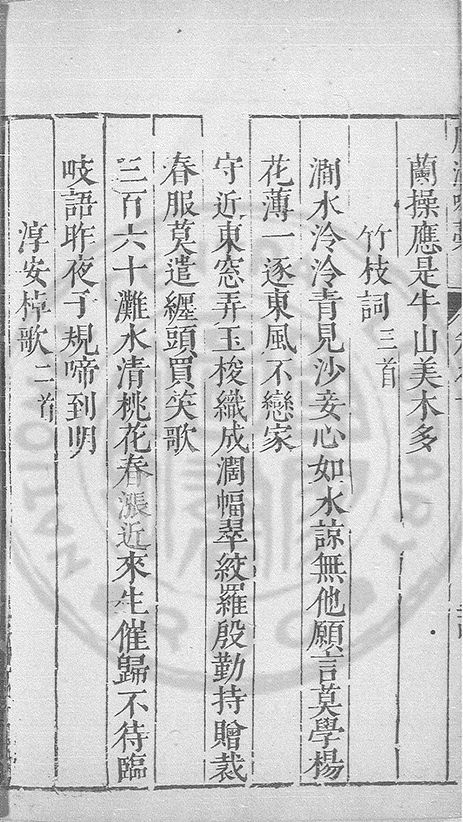 蘭操應是牛山美木多
竹枝詞三首
澗水泠泠青見沙妾心如水諒無他願言莫學楊
花薄一逐東風不戀家
守近東窓弄玉梭織成濶幅翠絞羅殷勤持贈裁
春服莫遣纏頭買笑歌
三百六十灘水清桃花春漲近來生催歸不待臨
岐語昨夜子規啼到明
淳安棹歌二首